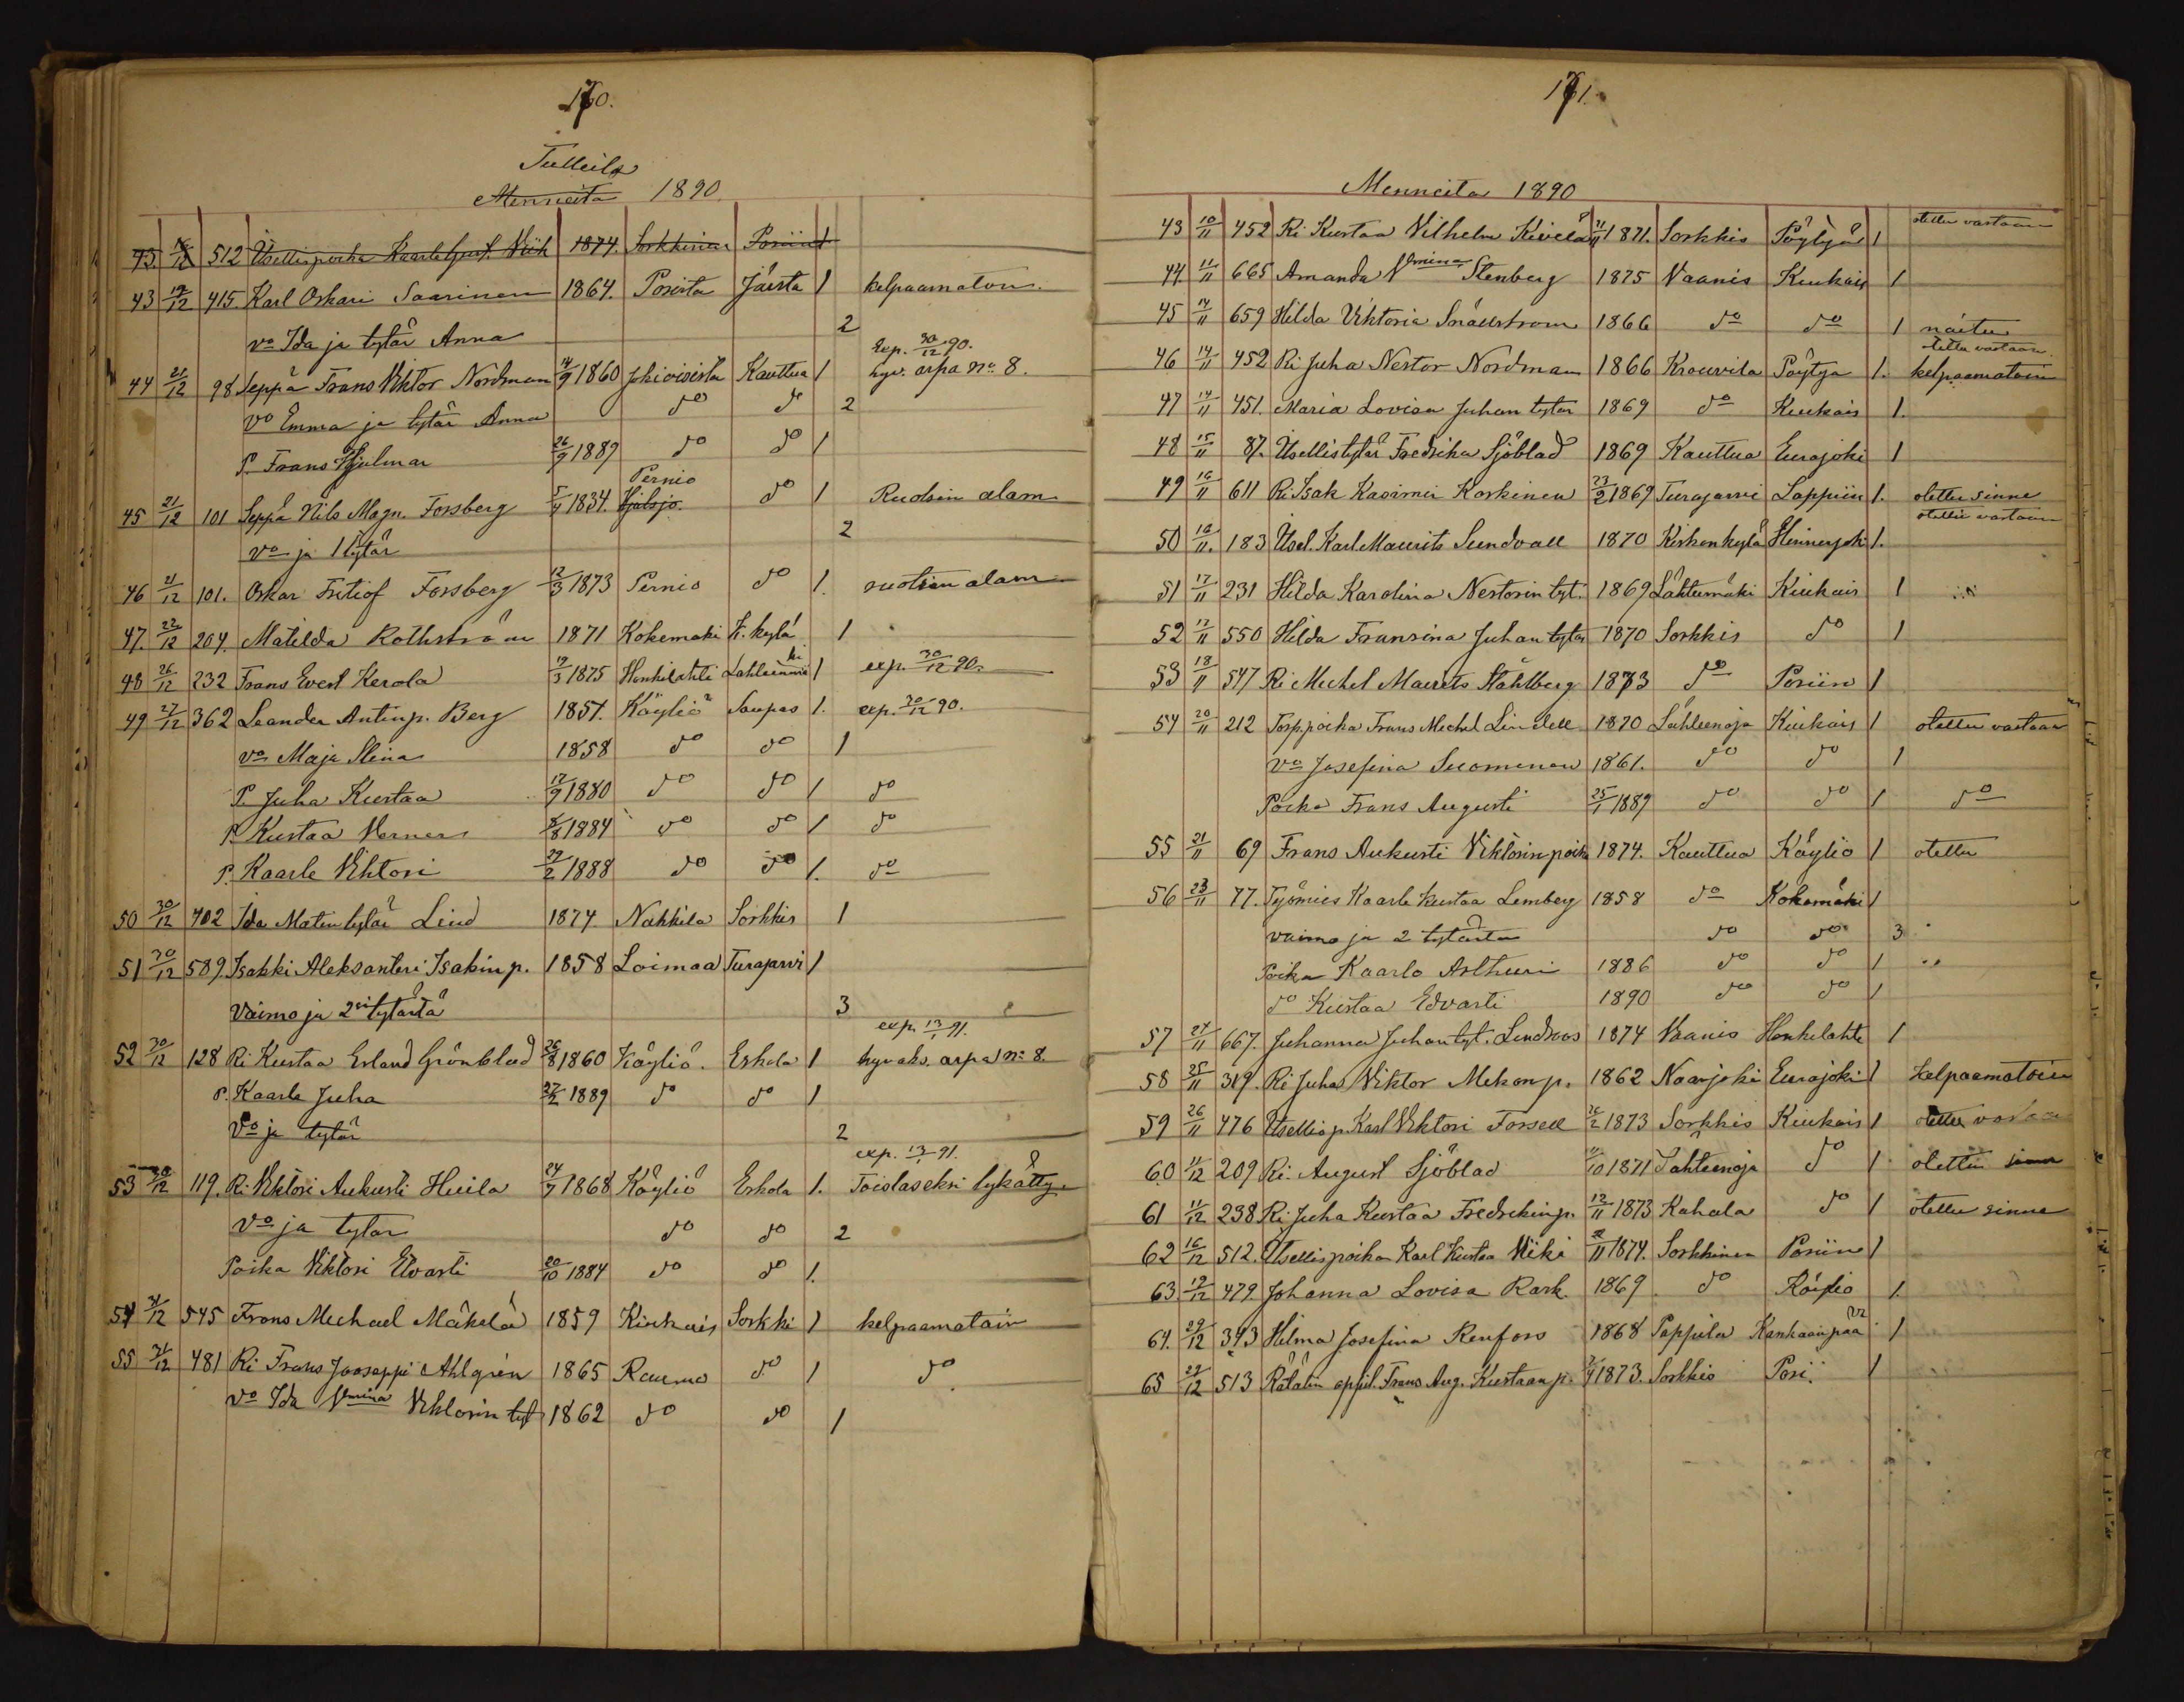 170.
Tulleita
Menneitä 1890.
43. 16/12 512 Itsellispoika Kaarle Gust. Niik 1874. Sorkkinen Poriin 1
43 19/12 415. Karl Oskari Saarinen 1864. Porista Järsta 1 kelpaamaton.
vo Ida ja tytär Anna 2
exp. 30/12 90.
44 21/12 98 Seppä Frans Viktor Nordman 14/9 1860 Jokioisista Kauttua 1 hyv. arpa No. 8.
Vo Emma ja tytär Anna do do 2
P. Frans Hjalmar 26/9 1889 do do 1
Pernio
45 21/12 101 Seppä Nils Magn. Forsberg 5/4 1834. do 1 Ruotsin alam
vo ja 1 tytär 2
46 21/12 101. Oskar Fritiof Forsberg 12/3 1873 Pernio do 1. ruotsin alam
47. 22/12 204. Matilda Rothström 1871 Kokemäki K. kylä 1
48 26/12 232 Frans Evert Kerola 19/3 1875 Honkilahti 1 exp. 30/12 90.
49 27/12 362 Leander Antinp. Berg 1857. Köyliö Saupas 1. exp. 30/12 90.
vo Maja Stina 1858 do do 1
P. Juha Kustaa 17/9 1880 do do 1 do
P. Kustaa Verner 1884 do do 1 do
P. Kaarle Viktori 29/2 1888 do do 1. do
50 30/12 402 Ida Matintytär Lind 1874. Nakkila Sorkkis 1
51 30/12 589. Isakki Aleksanteri Isakinp. 1858 Loimaa Turajarvi 1
Vaimo ja 2 tytärtä 3
exp. 13/1 91.
52 30/12 128 Ri Kustaa Erland Grönblad 26/8 1860 Köyliö. Eskola 1 hyväks. arpa No 8
P. Kaarle Juha 27/2 1889 do do 1
Vo ja tytär 2
exp. 13/1 91.
53 30/12 119. Ri Viktori Aukusti Huila 24/7 1868 Köyliö Eskola 1. Toistaseksi lykätty
Vo ja tytar do do 2
Poika Viktori Edvarti 20/10 1884 do do 1.
54 31/12 545 Frans Michael Mäkelä 1859 Kiukais Sorkki 1 kelpaamatoin
55 31/12 481 Ri Frans Jooseppi Ahlgrén 1865 Rauma do 1 do
Vo Ida Vilmina Viktorin tyt 1862 do do 1
171.
Menneitä 1890
43 10/11 452 Ri Kustaa Vilhelm Kivelä 1871. Sorkkis Pöytyä 1 otettu vastaan
44. 11/11 665 Amanda Vilmina Stenberg 1875 Vaanis Kiukais 1
45 14/11 659 Hilda Viktoria Snällstrom 1866 do do 1
otettu vastaan
46 14/11 452 Ri Juha Nestor Nordman 1866 Krouvila Pöytya 1. kelpaamatoin
47 14/11 451. Maria Lovisa Juhan tytar 1869 do Kiukais 1.
48 15/11 87. Itsellistytär Fredrika Sjöblad 1869 Kauttua Eurajoki 1
49 16/11 611 Ri Isak Kasimir Koskinen 23/2 1869 Turajarvi Lappiin 1. otettu sinne
otettiin vastaan
50 16/11. 183 Itsel. Karl Maurits Sundvall 1870 Kirkonkylä Hinnerjoki 1.
51 17/11 231 Hilda Karolina Nestorin tyt. 1869 Lähtumäki Kiukais 1
52 17/11 550 Hilda Fransina Juhan tytar 1870 Sorkkis do 1
53 18/11 547 Ri Michel Maurits Ståhlberg 1873 do Poriin 1
54 20/11 212 Torp.poika Frans Michel Lindell 1870 Lähteenoja Kiukais 1 otettu vastaan
Vo Josefina Suominen 1861. do do 1
Poika Frans Augusti 25/1 1889 do do 1 do
55 21/11 69 Frans Aukusti Viktorinpoika 1874. Kauttua Köyliö 1 otettu
56 23/11 77. Työmies Kaarle Kustaa Lemberg 1858 do Kokemäki 1
vaimo ja 2 tytärtä do do 3
Poika Kaarlo Arthuri 1886 do do 1
do Kustaa Edvarti 1890 do do 1
57 24/11 667. Juhanna Juhantyt. Lindroos 1874 Vaanis Honkilahte 1
58 25/11 319. Ri Juhas Viktor Mikonp. 1862 Naarjoki Eurajoki 1 kelpaamatoin
59 26/11 476 Itsellisp. Karl Viktori Forsell 1873 Sorkkis Kiukais 1 otettu vastaan
60 11/12 209 Ri. August Sjöblad 1871 Lähteenoja do 1 otettiin sinne
61 11/12 238 Ri Juha Kustaa Fredrikinp. 12/11 1873 Kahala do 1 otettu sinne
62 16/12 512. Itsellispoika Karl Kustaa Niki 1874. Sorkkinen Poriin 1
63 19/12 479. Johanna Lovisa Rask. 1869 do Köyliö 1
64. 29/12 343 Hilma Josefina Renfors 1868 Pappila Kankaanpää 1
65 29/12 513 Räätälin oppil. Frans Aug. Kustaanp. 1873. Sorkkis Pori. 1